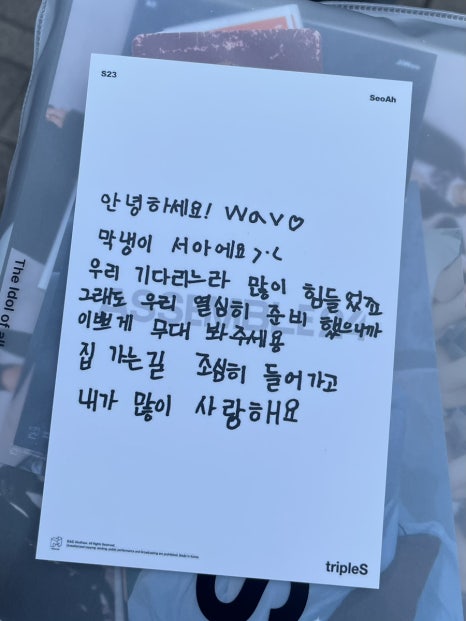 S23
SeoAh
안녕하세요! wav♡
막냉이 서아에요>.<
우리 기다리느라 많이 힘들었죠
그래도 우리 열심히 준비 했으니까
이쁘게 무대 봐주세용
집 가는길 조심히 들어가고
내가 많이 사랑해요
ASSEMBLE24
The Idol of all
tripleS
S